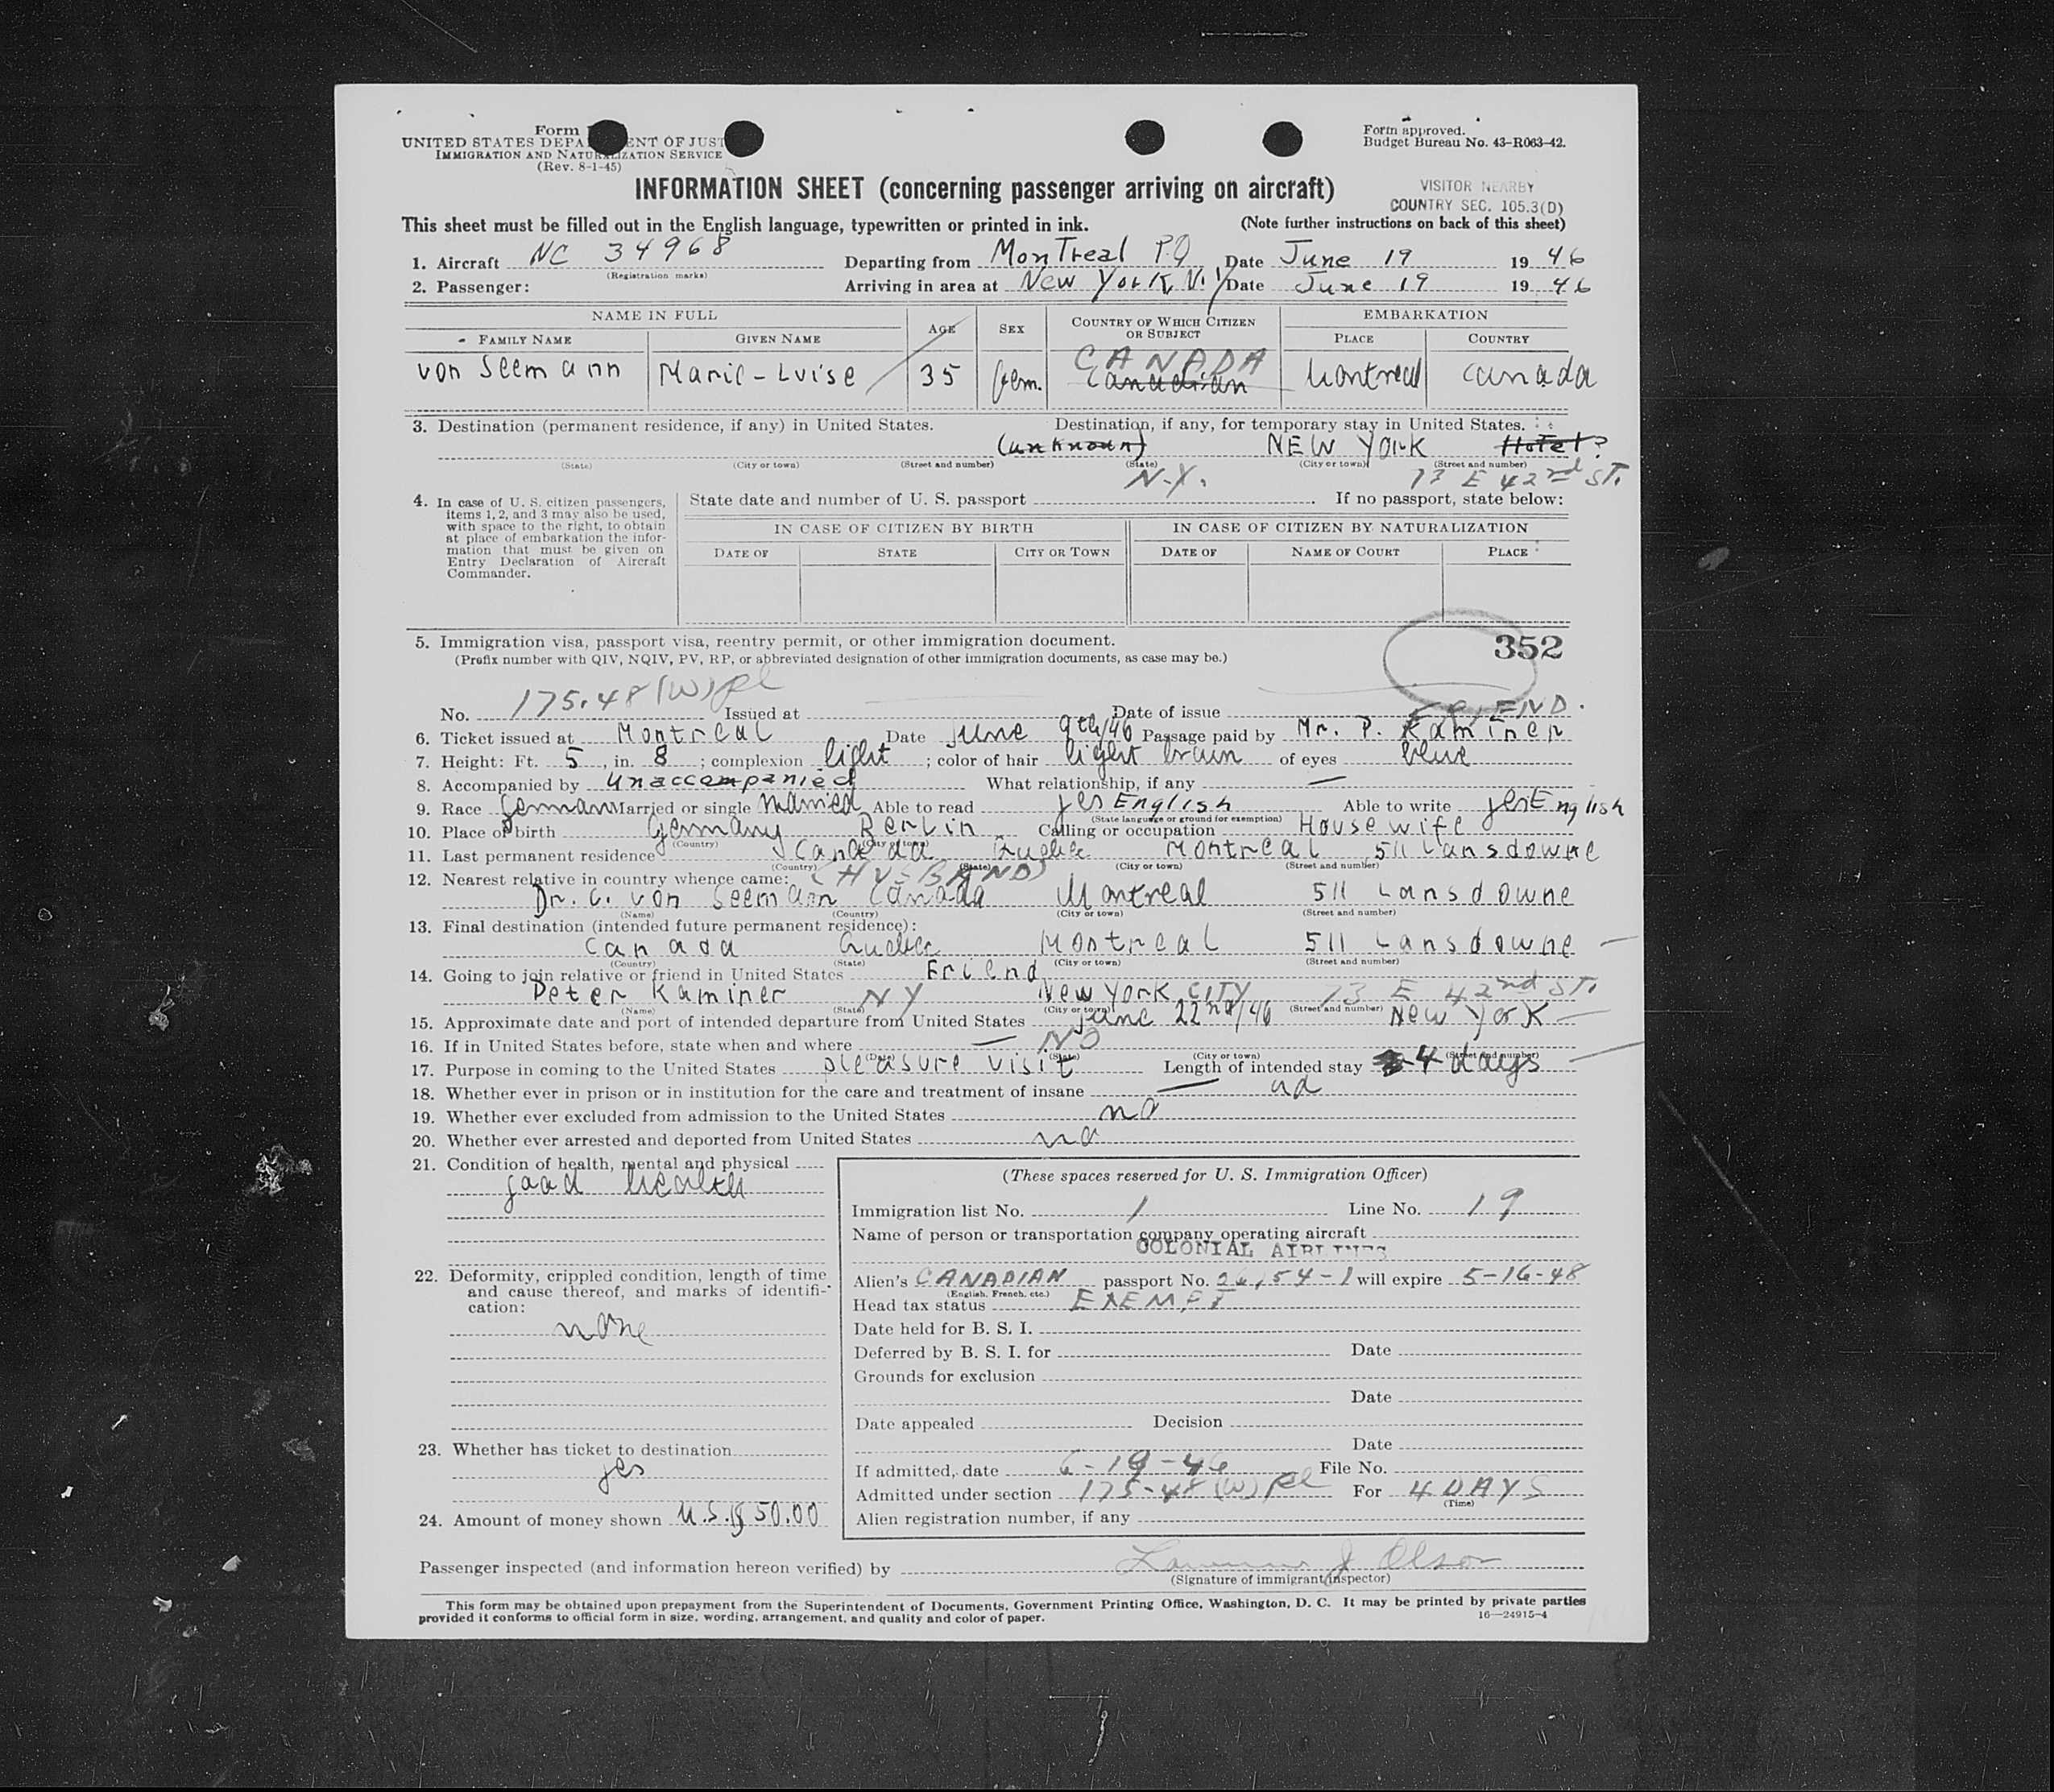 Form
UNITED STATES DEPA ENT OF JUST
IMMIGRATION AND NATURALIZATION SERVICE
(Rev. 8-1-45)
Form approved.
Budget Bureau No. 43-R063-42.
INFORMATION SHEET (concerning passenger arriving on aircraft)
VISITOR NEARBY
COUNTRY SEC. 105.3(D)
This sheet must be filled out in the English language, typewritten or printed in ink. (Note further instructions on back of this sheet)
1. Aircraft NC 34968 Departing from MonTreal P.Q Date June 19 1946
(Registration marks)
2. Passenger: Arriving in area at New York, N.Y Date June 19 1946
NAME IN FULL AGE SEX COUNTRY OF WHICH CITIZEN OR SUBJECT EMBARKATION
FAMILY NAME GIVEN NAME PLACE COUNTRY
CANADA
von Seemann Marie-Luise 35 fem. Canadian Montreal Canada
3. Destination (permanent residence, if any) in United States. Destination, if any, for temporary stay in United States.
(unknown) NEW YORK Hotel?
(State) (City or town) (Street and number) (State) (City or town) (Street and number)
N.Y. 13 E 42nd ST.
4. In case of U. S. citizen passengers, items 1, 2, and 3 may also be used, with space to the right, to obtain at place of embarkation the information that must be given on Entry Declaration of Aircraft Commander.
State date and number of U. S. passport . If no passport, state below:
IN CASE OF CITIZEN BY BIRTH IN CASE OF CITIZEN BY NATURALIZATION
DATE OF STATE CITY OR TOWN DATE OF NAME OF COURT PLACE
5. Immigration visa, passport visa, reentry permit, or other immigration document. 352
(Prefix number with QIV, NQIV, PV, RP, or abbreviated designation of other immigration documents, as case may be.)
No. 175.48(W) Issued at Date of issue
FRIEND.
6. Ticket issued at Montreal Date June 9th/46 Passage paid by Mr. P. Kaminer
7. Height: Ft. 5, in. 8; complexion light; color of hair light brown of eyes blue
8. Accompanied by unaccompanied What relationship, if any —
9. Race German Married or single married Able to read yes English Able to write yes English
(State language or ground for exemption)
10. Place of birth Germany Berlin Calling or occupation Housewife
(Country) (City or town)
11. Last permanent residence Canada Quebec Montreal 511 Lansdowne
(Country) (State) (City or town) (Street and number)
12. Nearest relative in country whence came: (HUSBAND)
Dr. C. von Seemann Canada Montreal 511 Lansdowne
(Name) (Country) (City or town) (Street and number)
13. Final destination (intended future permanent residence):
Canada Quebec Montreal 511 Lansdowne
(Country) (State) (City or town) (Street and number)
14. Going to join relative or friend in United States Friend
Peter Kaminer NY New York CITY 13 E 42nd ST.
(Name) (State) (City or town) (Street and number)
15. Approximate date and port of intended departure from United States June 22nd/46 New York
16. If in United States before, state when and where — NO
(Date) (State) (City or town) (Street and number)
17. Purpose in coming to the United States pleasure visit Length of intended stay 4 days
18. Whether ever in prison or in institution for the care and treatment of insane — no
19. Whether ever excluded from admission to the United States no
20. Whether ever arrested and deported from United States no
21. Condition of health, mental and physical
good health
22. Deformity, crippled condition, length of time and cause thereof, and marks of identification:
none
23. Whether has ticket to destination
yes
24. Amount of money shown U.S.$ 50.00
(These spaces reserved for U. S. Immigration Officer)
Immigration list No. 1 Line No. 19
Name of person or transportation company operating aircraft
COLONIAL AIRLINES
Alien's CANADIAN passport No. 26,54-1 will expire 5-16-48
(English, French, etc.)
Head tax status EXEMPT
Date held for B. S. I.
Deferred by B. S. I. for Date
Grounds for exclusion
Date
Date appealed Decision
Date
If admitted, date 6-19-46 File No.
Admitted under section 175-48(W) For 4 DAYS
(Time)
Alien registration number, if any
Passenger inspected (and information hereon verified) by Lawrence J Olson
(Signature of immigrant inspector)
This form may be obtained upon prepayment from the Superintendent of Documents, Government Printing Office, Washington, D. C. It may be printed by private parties
provided it conforms to official form in size, wording, arrangement, and quality and color of paper. 16—24915-4